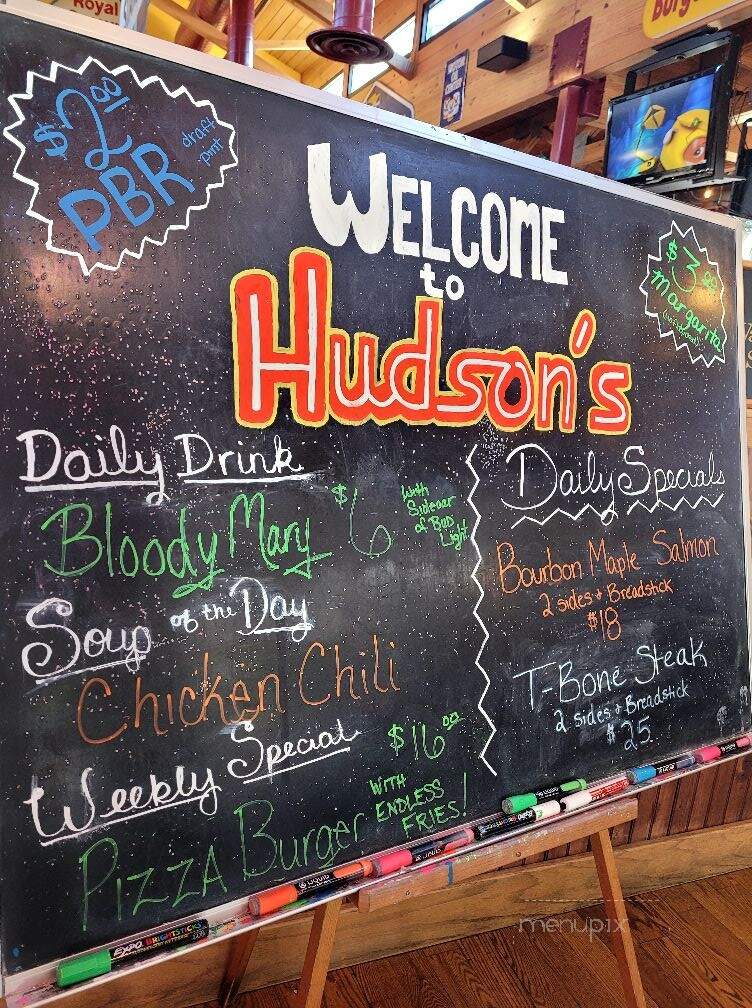 Royal
Burge
$2.00
PBR
draft
pint
WELCOME
to
Hudson's
$3.00
margarita
Daily Drink
Bloody Mary $6
With
Sidecar
of Bud
Light
Soup of the Day
Chicken Chili
Weekly Special
$16.00
Pizza Burger
WITH
ENDLESS
FRIES!
Daily Specials
Bourbon Maple Salmon
2 sides + Breadstick
$18
T-Bone Steak
2 sides + Breadstick
$25
EXPO BRIGHTSTICKS
LIQUID
menupix